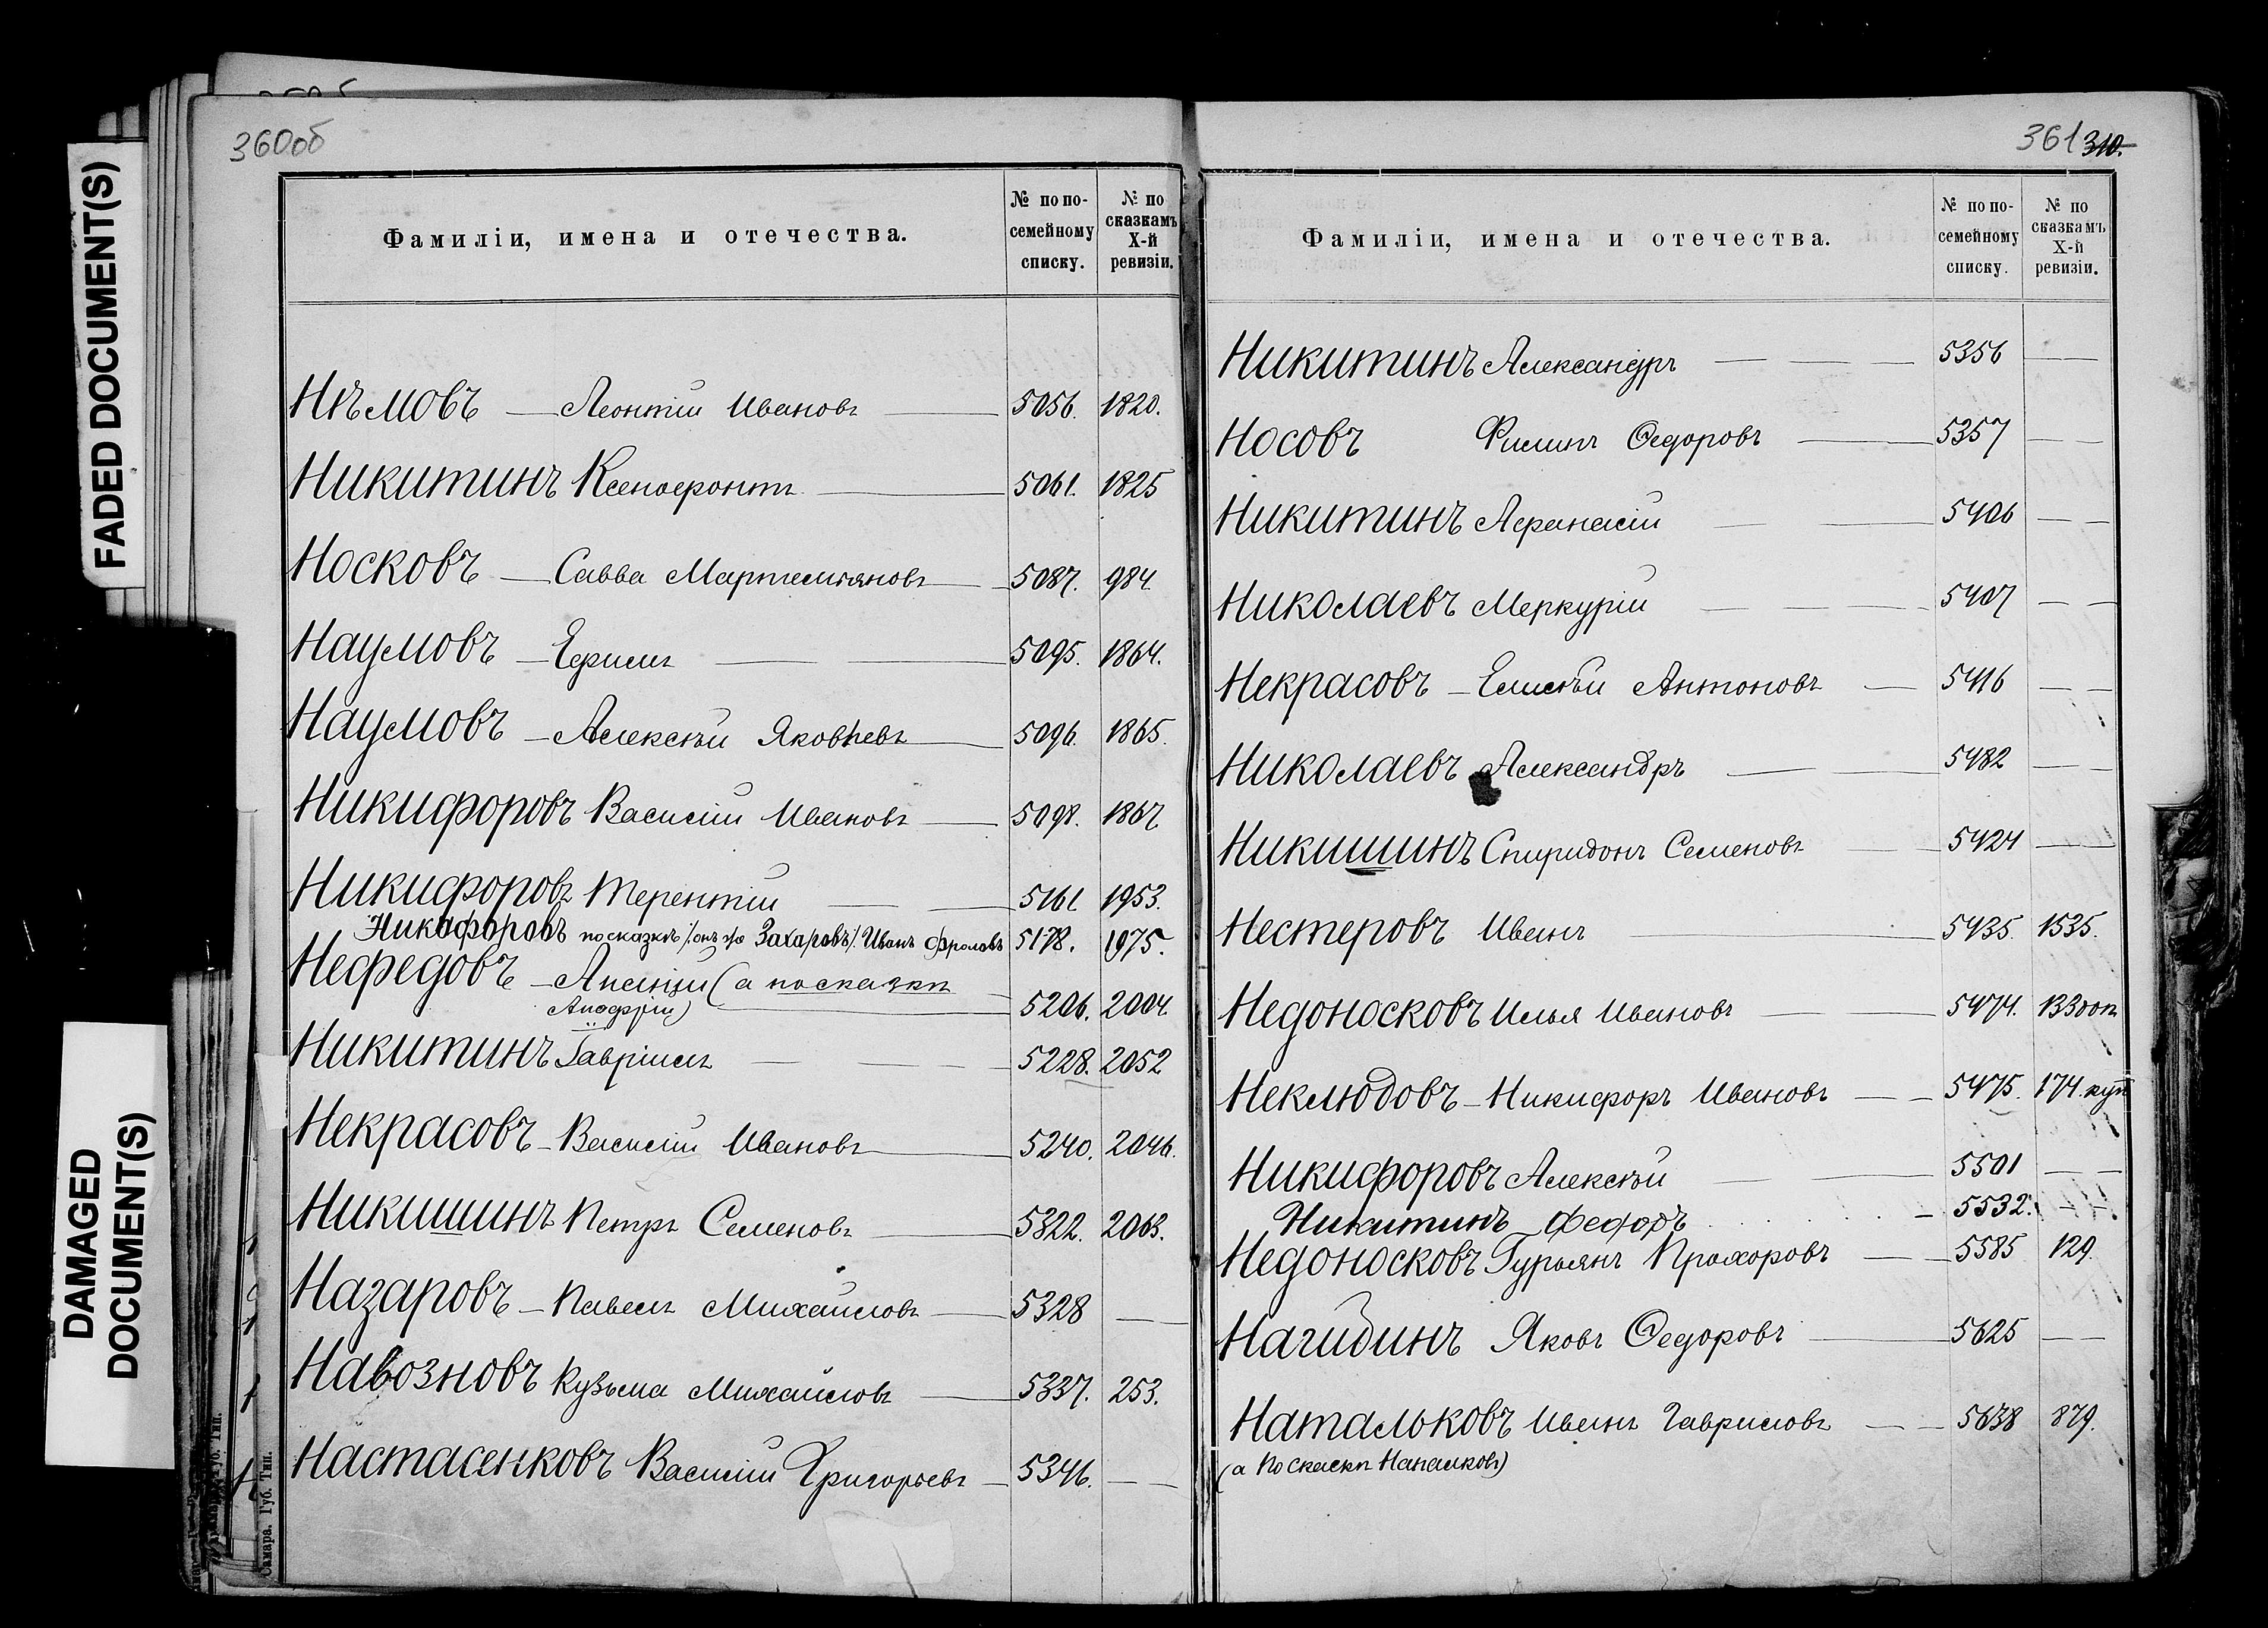 FADED DOCUMENT(S)
DAMAGED
DOCUMENT(S)
360об
Фамиліи, имена и отечества.
№ по по-
семейному
списку.
№ по
сказкамъ
X-й
ревизіи.
Нѣмовъ — Леонтій Ивановъ — 5056. 1820.
Никитинъ Ксенофонтъ — 5061. 1825
Носковъ — Савва Мартемьяновъ — 5087. 984.
Наумовъ — Ефимъ — 5095. 1864.
Наумовъ — Алексѣй Яковлевъ — 5096. 1865.
Никифоровъ Василій Ивановъ — 5098. 1867.
Никифоровъ Терентій — 5161 1953.
Никифоровъ по сказкѣ /:онъ же Захаровъ:/ Иванъ Фроловъ 5178. 1975.
Нефедовъ — (а по сказкѣ
5206. 2004.
Никитинъ Гавріилъ — 5228. 2052
Некрасовъ — Василій Ивановъ — 5240. 2046.
Никишинъ Петръ Семеновъ — 5322. 2063.
Назаровъ — Павелъ Михайловъ — 5328 —
Навозновъ Кузьма Михайловъ — 5337. 253.
Настасенковъ Василій Григорьевъ — 5346. —
Самара. Губ. Тип.
361 310.
Фамиліи, имена и отечества.
№ по по-
семейному
списку.
№ по
сказкамъ
X-й
ревизіи.
Никитинъ Александръ — 5356 —
Носовъ Филипъ Федоровъ — 5357 —
Никитинъ Афанасій — 5406 —
Николаевъ Меркурій — 5407 —
Некрасовъ — Елисѣй Антоновъ — 5416 —
Николаевъ Александръ — 5482 —
Никишинъ Спиридонъ Семеновъ — 5424 —
Нестеровъ Иванъ — 5435. 1535.
Недоносковъ Илья Ивановъ — 5474. 133доп.
Неклюдовъ — Никифоръ Ивановъ — 5475. 174. куп
Никифоровъ Алексѣй — 5501 —
Никитинъ Федоръ — 5532. —
Недоносковъ Гурьянъ Прохоровъ — 5585 129.
Нагидинъ Яковъ Федоровъ — 5625 —
Натальковъ Иванъ Гавриловъ — 5638 879.
(а по сказкѣ Напалковъ)